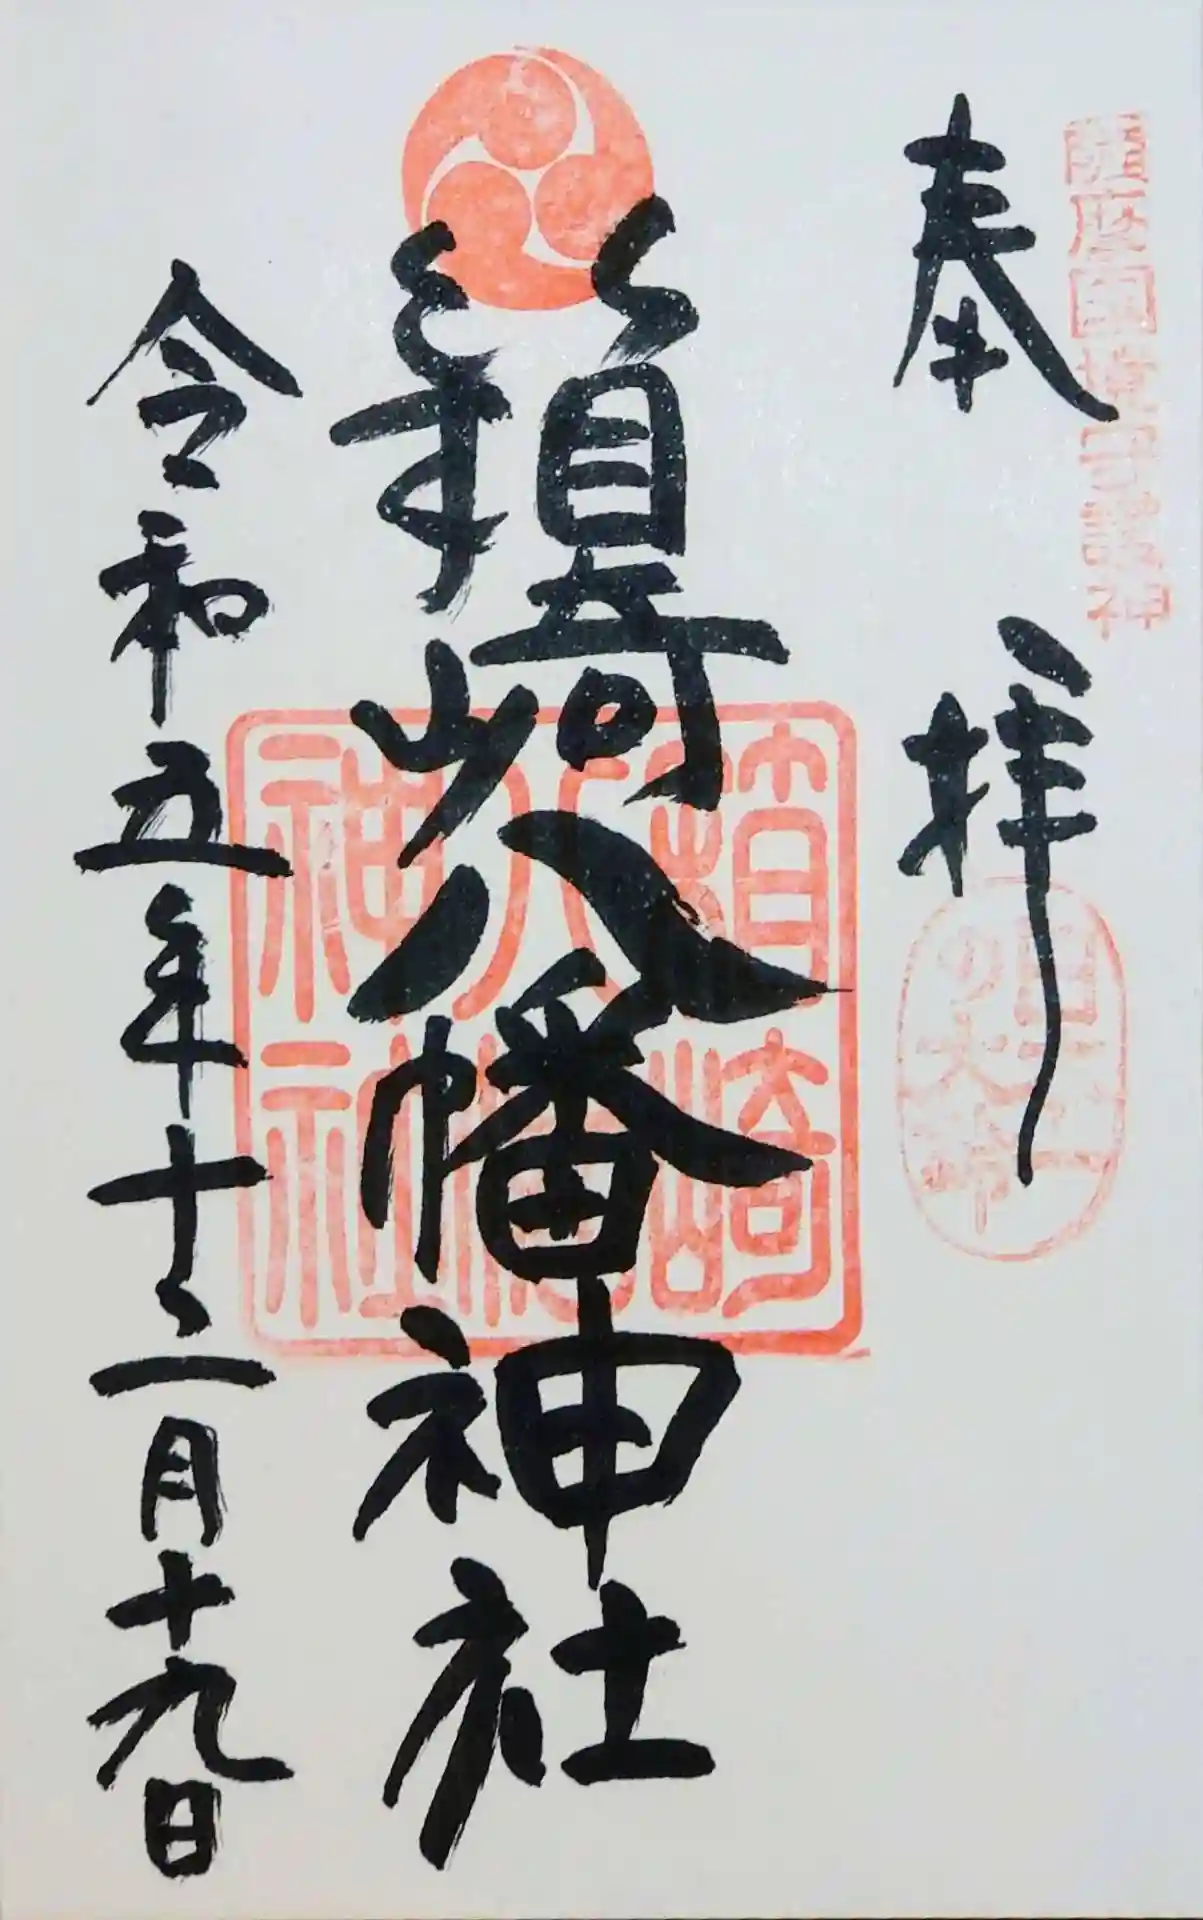 奉拝
日本一
の大鈴
箱崎八幡神社
箱崎
八幡
神社
令和五年十二月十九日